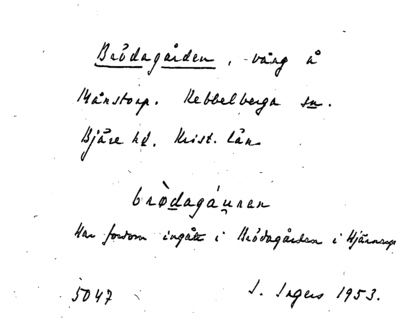 Brödagården, vång å
Månstorp. Rebbelberga sn.
Bjäre hd. Krist. län
brödagáu̯nen
Har fordom ingått i Brödagården i Hjärnarp
5047 I. Ingers 1953.